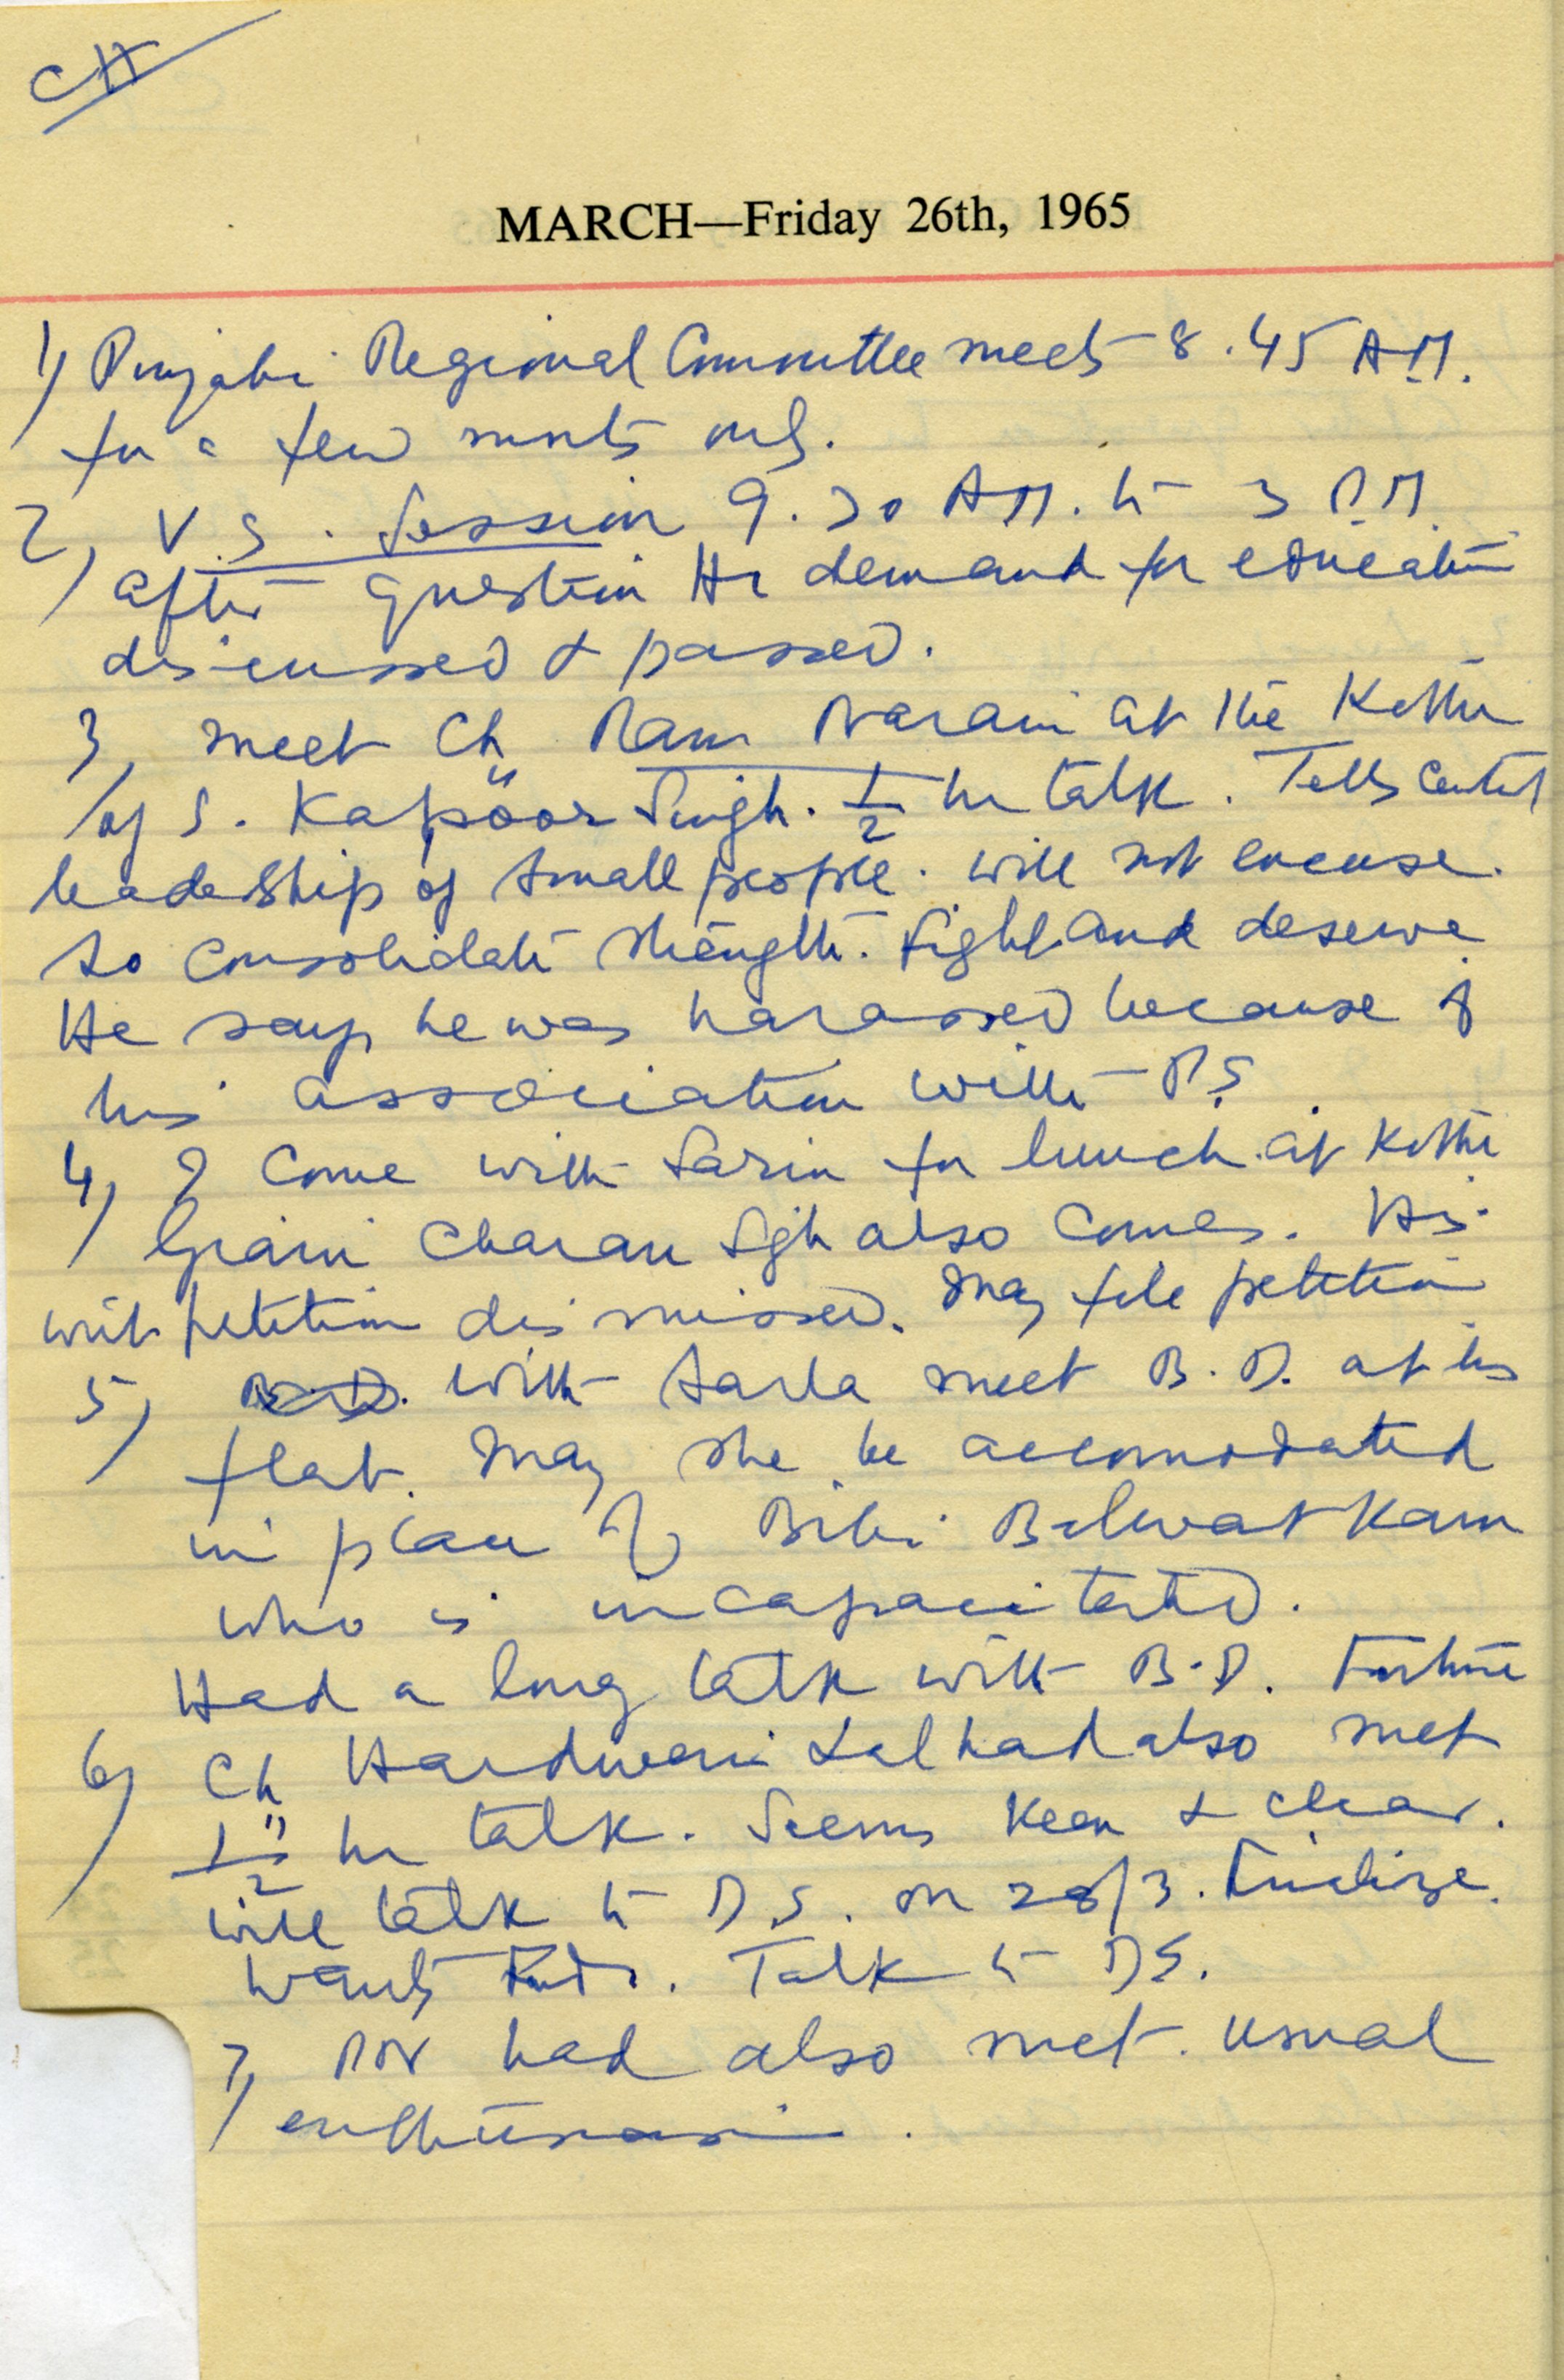 CH
MARCH—Friday 26th, 1965
1) Punjabi Regional Committee meets 8.45 A.M.
for a few minuts only.
2) V.S. Session 9.30 A.M. to 3 P.M.
After question Hr demand for education
discussed & passed.
3) Meet Ch Ram Narain at the Kothi
of S. Kapoor Singh. 1/2 hr talk. Tells
leadership of small people. Will not excuse.
So consolidate strength. Fight and deserve.
He says he was harassed because of
his association with P.S.
4) I come with Sarin for lunch at Kothi
Giani Charan Sgh also comes. His
writ petition dismissed. May file petition
5) With Sarla meet B.D. at his
flat. May she be accomodated
in place of Bibi Balwat Kaur
who is incapacitated.
Had a long talk with B.D.
6) Ch Hardwari Lal had also met
1/2 hr talk. Seems keen & clear.
will talk to D.S. on 28/3. Finalize.
Wants . Talk to DS.
7) RN had also met. Usual
enthusiasm.